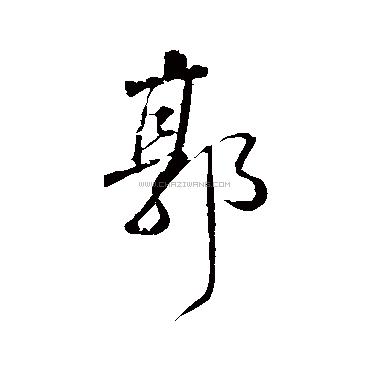 郭
WWW.CHAZIWANG.COM